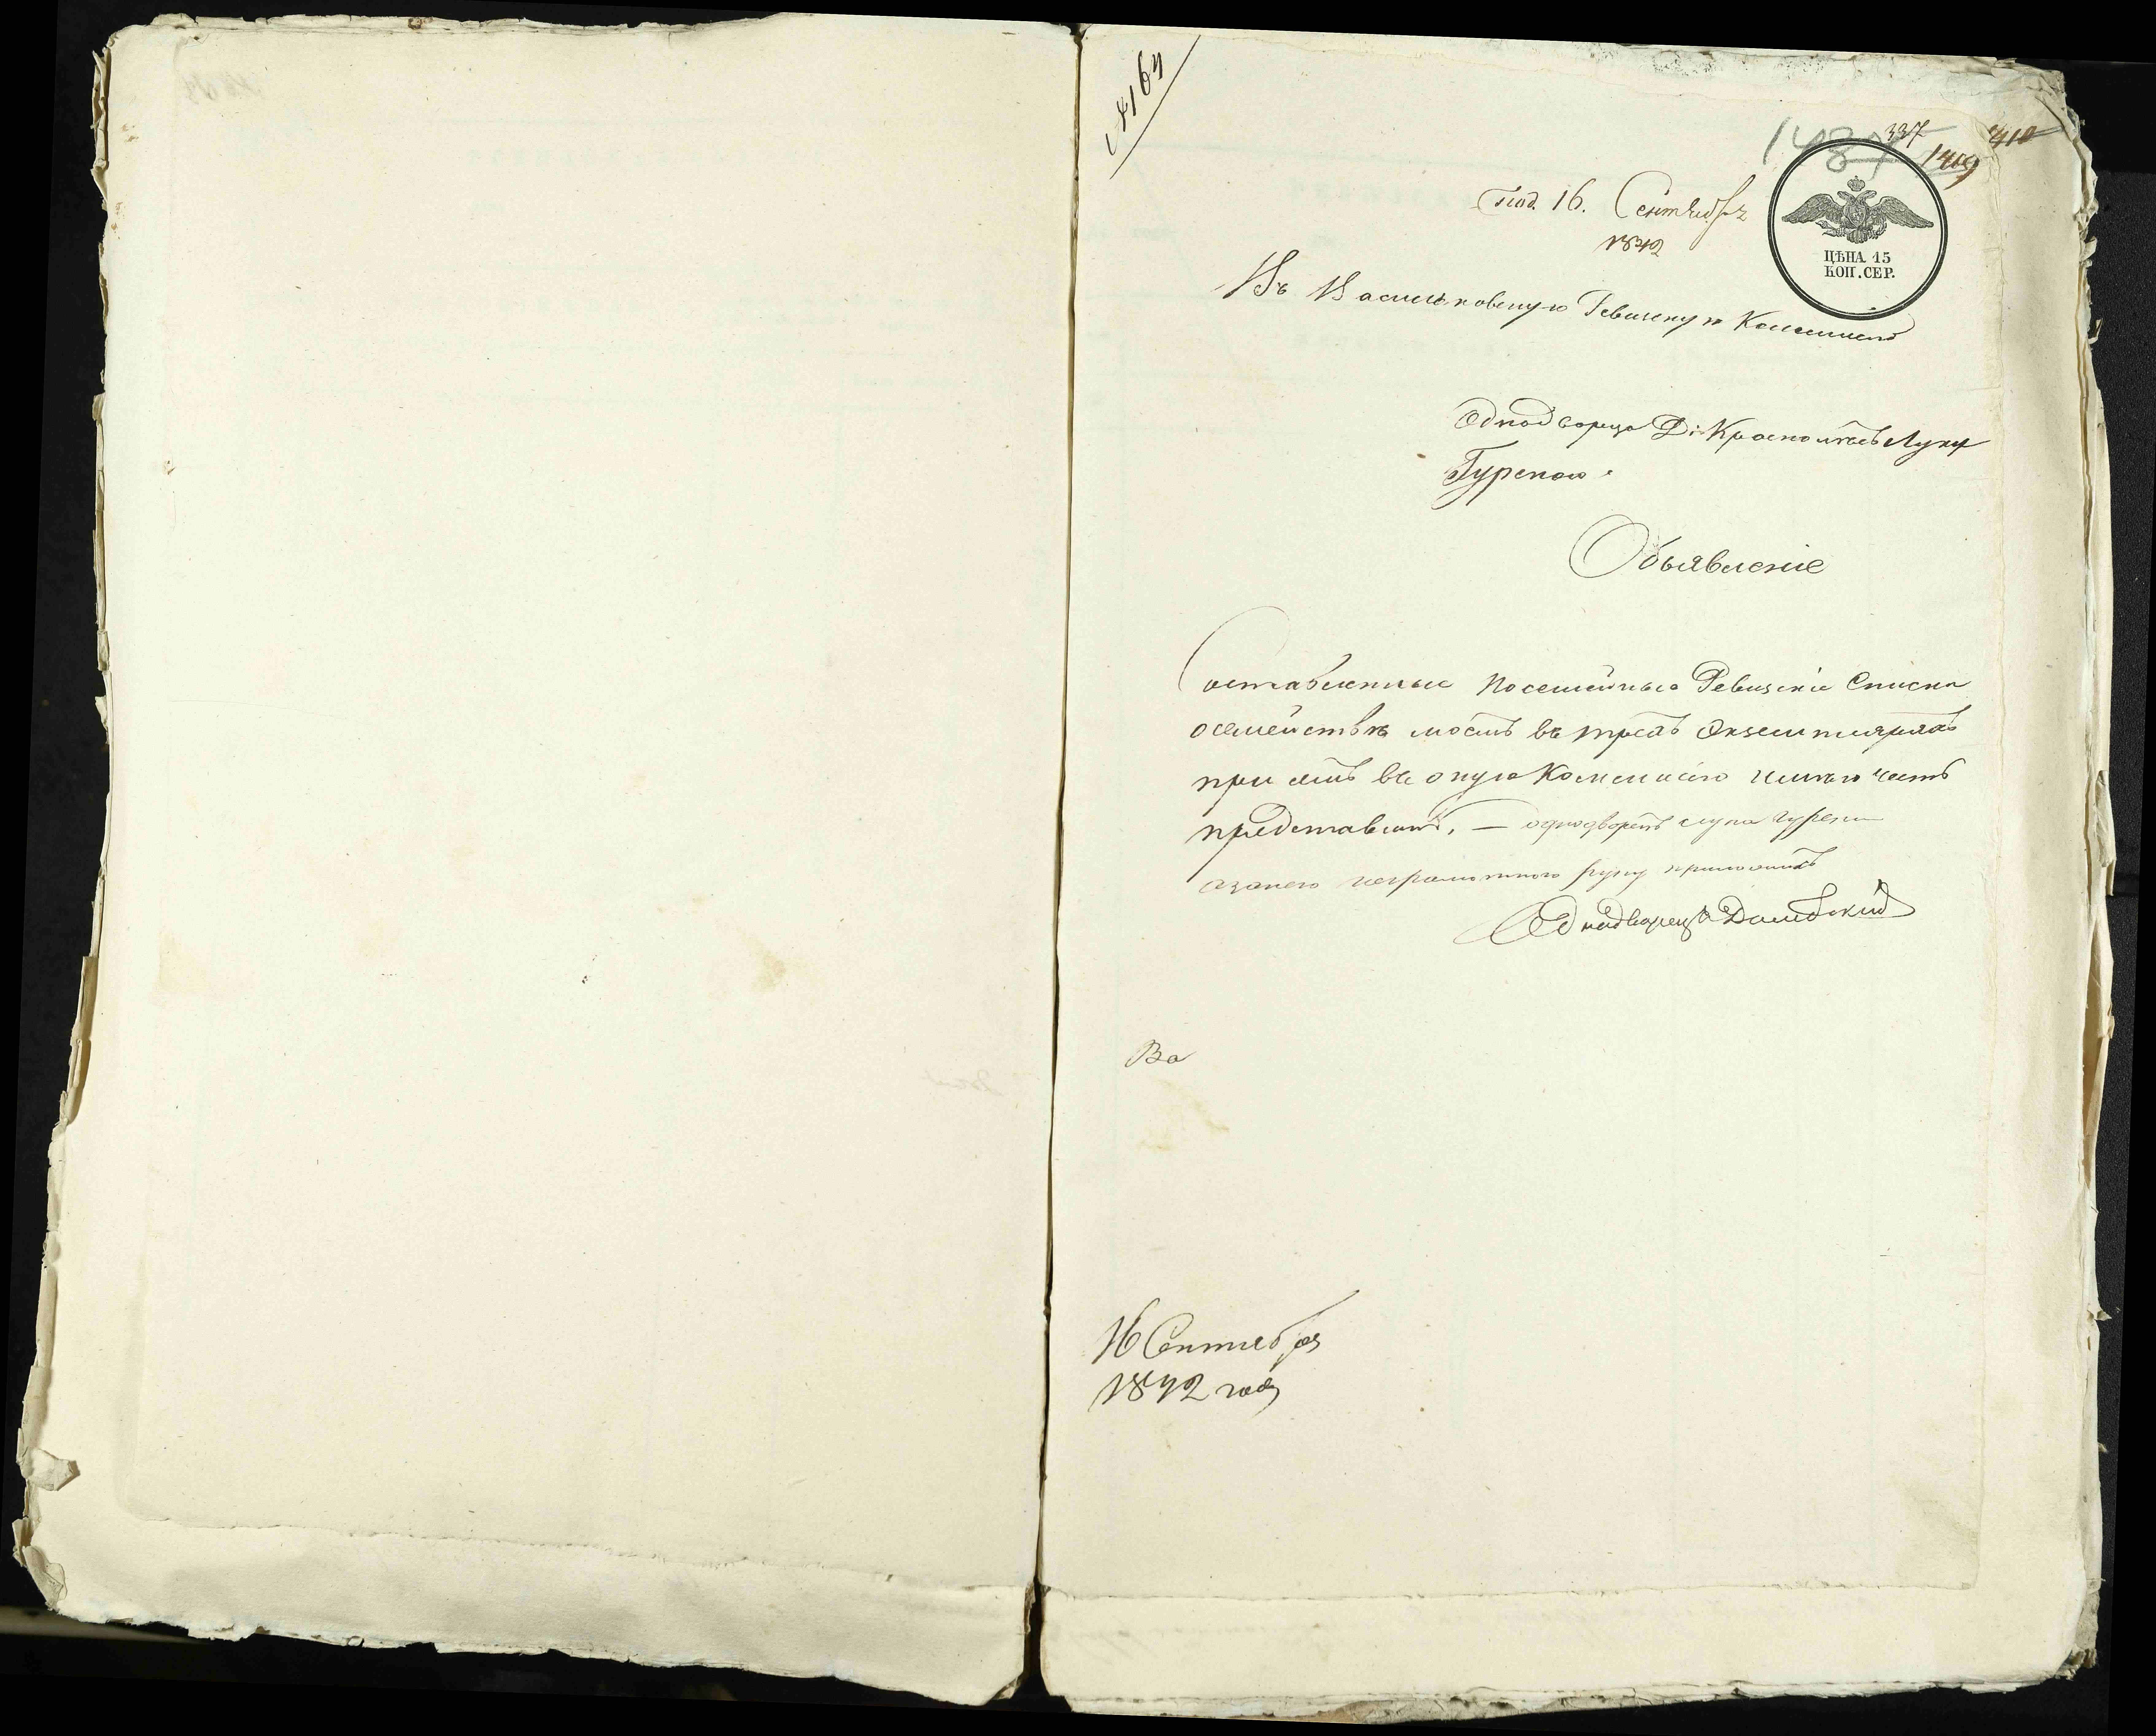 4164
337
1409
410
Под. 16. Сентября
1842
ЦѢНА 15
КОП. СЕР.
Въ Васильковскую Ревизскую Коммисію
Однодворца Д: Луки
Гурского.
Объявленіе
Составленные Посемейные Ревизскіе Списки
осемействѣ моемъ въ трехъ Экземплярахъ
при семъ въ оную Коммисію имѣю честь
представить, — однодворецъ лука гурски
азанего неграмотного руку приложилъ
Однодворецъ Домбскій
Ва
16 Сентября
1842 года